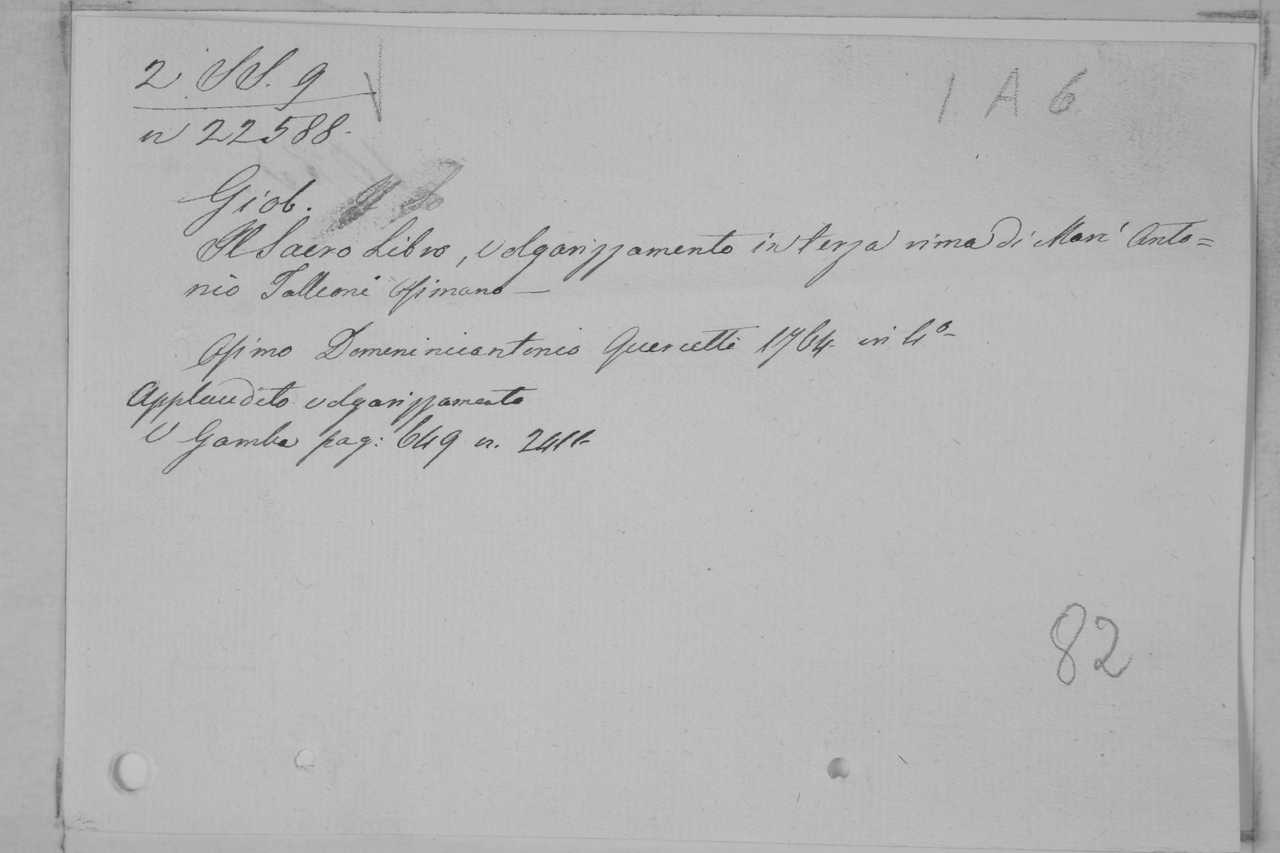 2 SS. 9
n 22588.
1 A 6
Giob.
Il Sacro Libro, volgarizzamento in terza rima di Marc' Anto=
nio Talleoni Osimano —
Osimo Domenincantonio Quercetti 1764 in 4°
Applaudito volgarizzamento
V Gamba pag: 649 n.
82